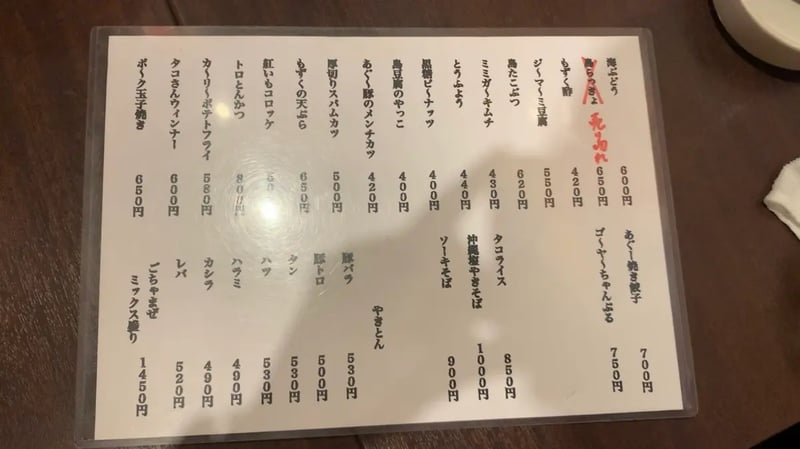 海ぶどう 600円
島らっきょ 売切れ 650円
もずく酢 420円
ジ〜マ〜ミ豆腐 550円
島たこぶつ 620円
ミミガ〜キムチ 430円
とうふよう 440円
黒糖ピ〜ナッツ 400円
島豆腐のやっこ 400円
あぐ〜豚のメンチカツ 420円
厚切りスパムカツ 500円
もずくの天ぷら 650円
紅いもコロッケ
トロとんかつ 800円
カ〜リ〜ポテトフライ 580円
タコさんウィンナー 600円
ポ〜ク玉子焼き 650円
あぐー焼き餃子 700円
ゴ〜ヤ〜ちゃんぷる 750円
タコライス 850円
沖縄塩やきそば 1000円
ソーキそば 900円
やきとん
豚バラ 530円
豚トロ 500円
タン 530円
ハツ 530円
ハラミ 490円
カシラ 490円
レバ 520円
ごちゃまぜ
ミックス盛り 1450円